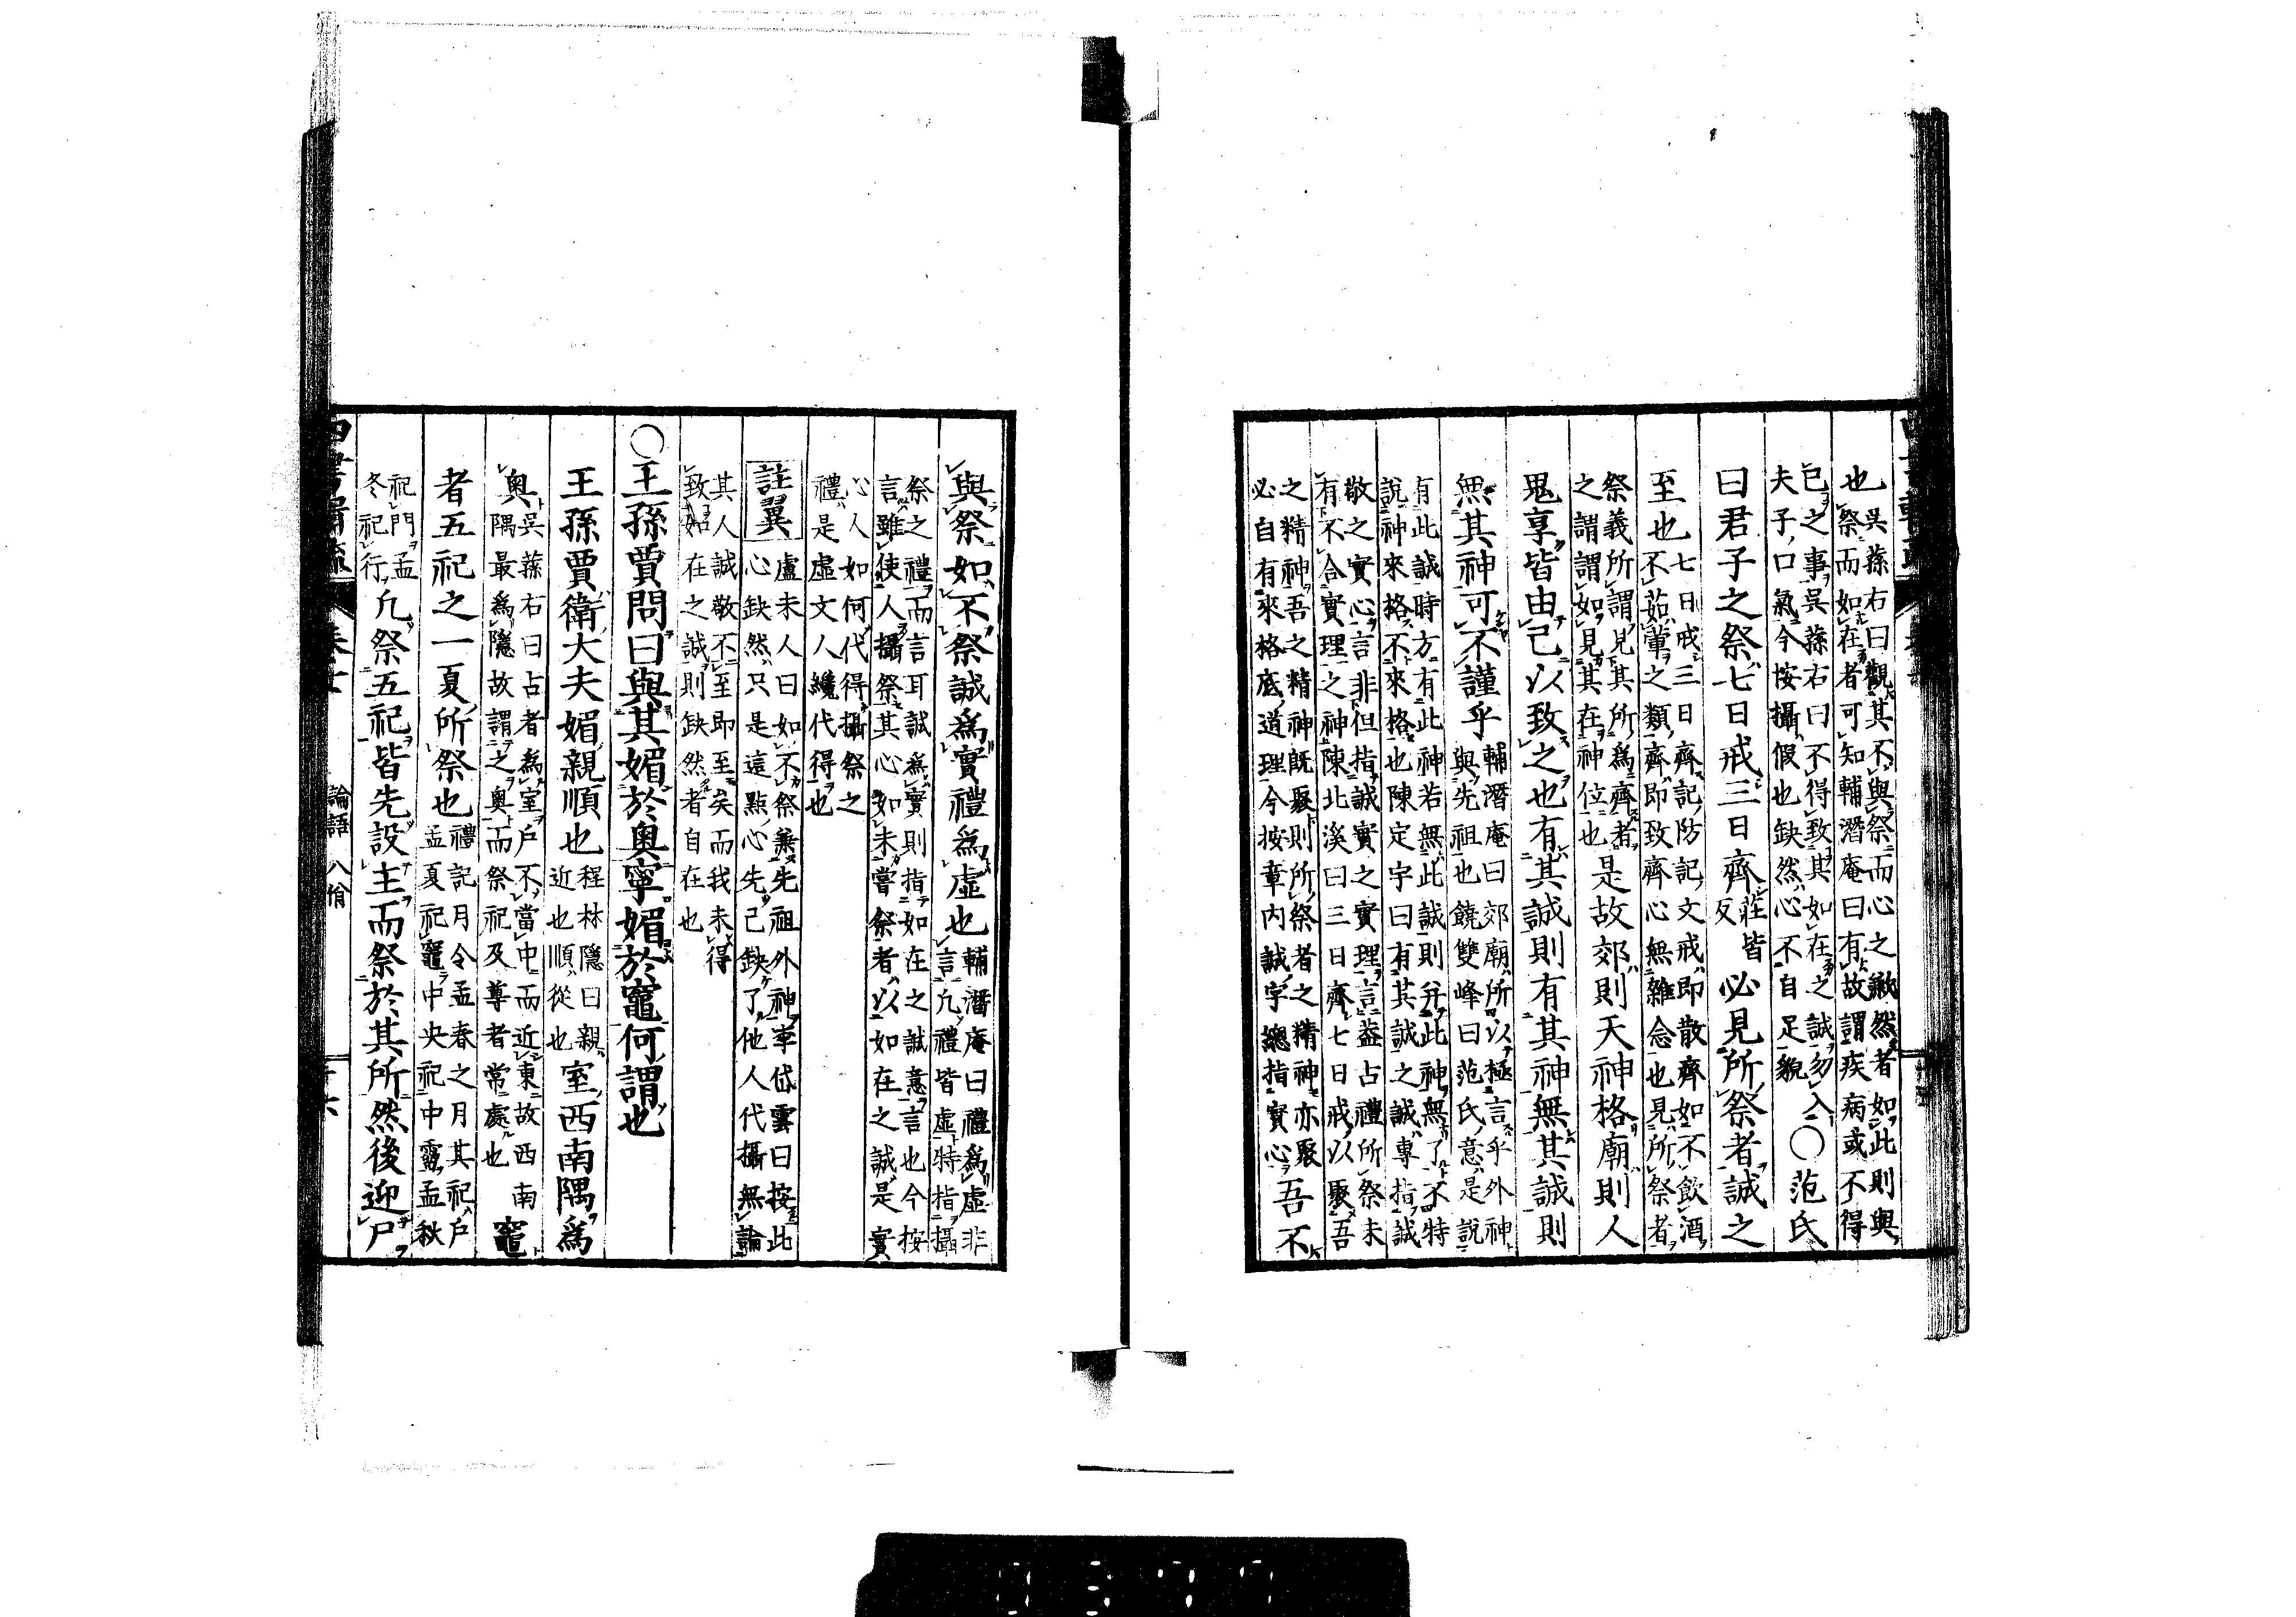 也吳蓀右曰觀其不與祭而心之歉然者如此則與
祭而如在者可知輔潛庵曰有故謂疾病或不得
已之事吳蓀右曰不得致其如在之誠勿入
夫子口氣今按攝假也缺然心不自足貌○范氏
曰君子之祭七日戒三日齊莊皆反必見所祭者誠之
至也七日戒三日齊記防記文戒即散齊如不飲酒
不茹葷之類齊即致齊心無雜念也見所祭者
祭義所謂見其所為齊者
之謂謂如見其在神位也是故郊則天神格廟則人
鬼享皆由己以致之也有其誠則有其神無其誠則
無其神可不謹乎輔潛庵曰郊廟所以極言乎外神
與先祖也饒雙峰曰范氏意是說
有此誠時方有此神若無此誠則并此神無了不特
說神來格不來格也陳定宇曰有其誠之誠專指誠
敬之實心言非但指誠實之實理言葢占禮所祭未
有不合實理之神陳北溪曰三日齊七日戒以聚吾
之精神吾之精神既聚則所祭者之精神亦聚
必自有來格底道理今按章內誠字總指實心吾不
與祭如不祭誠爲實禮爲虛也輔潛庵曰禮爲虛非
言凡禮皆虛特指攝
祭之禮而言耳誠爲實則指如在之誠意言也今按
言雖使人攝祭其心如未嘗祭者以如在之誠是實
心人如何代得攝祭之
禮是虛文人纔代得也
註翼盧未人曰如不祭兼先祖外神李岱雲曰按此
心缺然只是這點心先己缺了他人代攝無論
其人誠敬不至即至矣而我未得
致如在之誠則缺然者自在也
○王孫賈問曰與其媚於奧寧媚於竈何謂也
王孫賈衛大夫媚親順也程林隱曰親
近也順從也室西南隅爲
奧吳蓀右曰占者為室戶不當中而近東故西南
隅最爲隱故謂之奧而祭祀及尊者常處也竈
者五祀之一夏所祭也禮記月令孟春之月其祀戶
孟夏祀竈中央祀中霤孟秋
祀門孟
冬祀行凡祭五祀皆先設主而祭於其所然後迎尸
論語 八佾